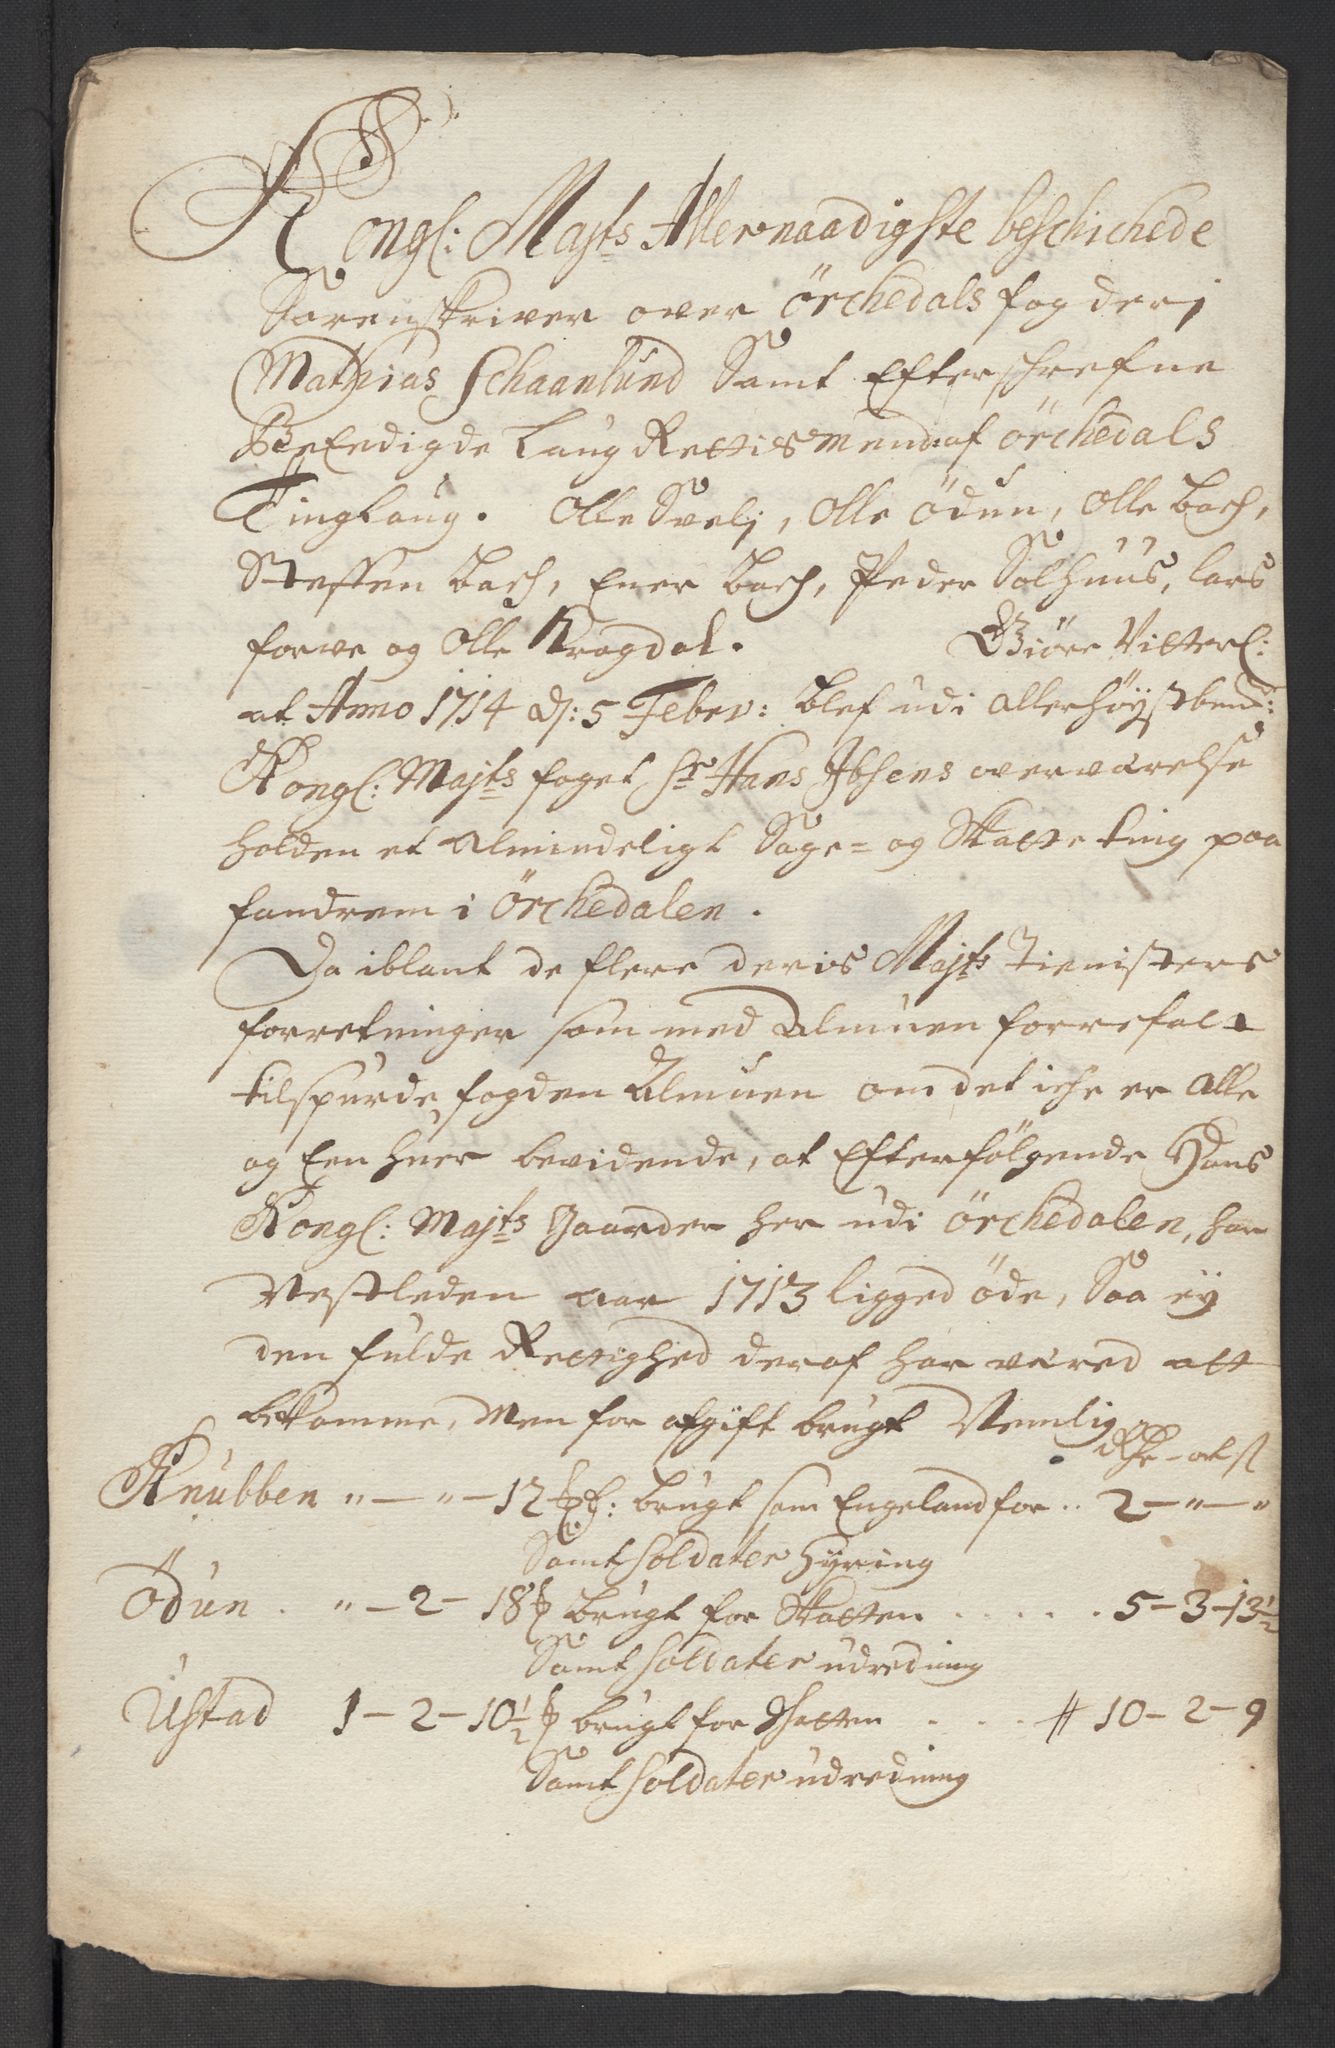 Kongl: Mayts Allernaadigste beschichede
Sorenskriver over Örchedals fogderj
Mathias Schaanlund Samt Efterschrefne
BeEedigde LaugRettismend af Örchedals
Tinglaug. Olle Svelj, Olle Ödun, Olle Bach,
Steffen Bach, Ener Bach, Peder Solhuus, Lars
forve og Olle Krogdal. Giöre Vitterl:
at Anno 1714 d: 5 Febrv: blef udi allerhöystbemt:
Kongl: Majts foget Sr Hans Ibsens overværelse
holden et almindeligt Sage- og Skatte ting paa
fandrem i Örchedalen.
Da iblant de flere deris Majts Tienisters
forretninger som med Almuen forrefalt
tilspurde fogden Almuen om det iche er alle
og Een huer bevidende, at Efterfölgende Hans
Kongl: Majts Gaarder her udi Örchedalen, har
Nestleden aar 1713 ligged öde, Saa ey
den fulde Rettighed deraf har væred att
bekomme, Men for afgift brugt Nemlig
Rdr - ort ß
Knubben " - " - 12 : brugt som Engeland for .. 2 - " - "
Samt soldater Hyring
Ödun . " - 2 - 18 brugt for Skatten . . . . . 5 - 3 - 13½
Samt soldater udredning
Ustad 1 - 2 - 10½ brugt for Skatten . . . # 10 - 2 - 9
Samt soldater udredning